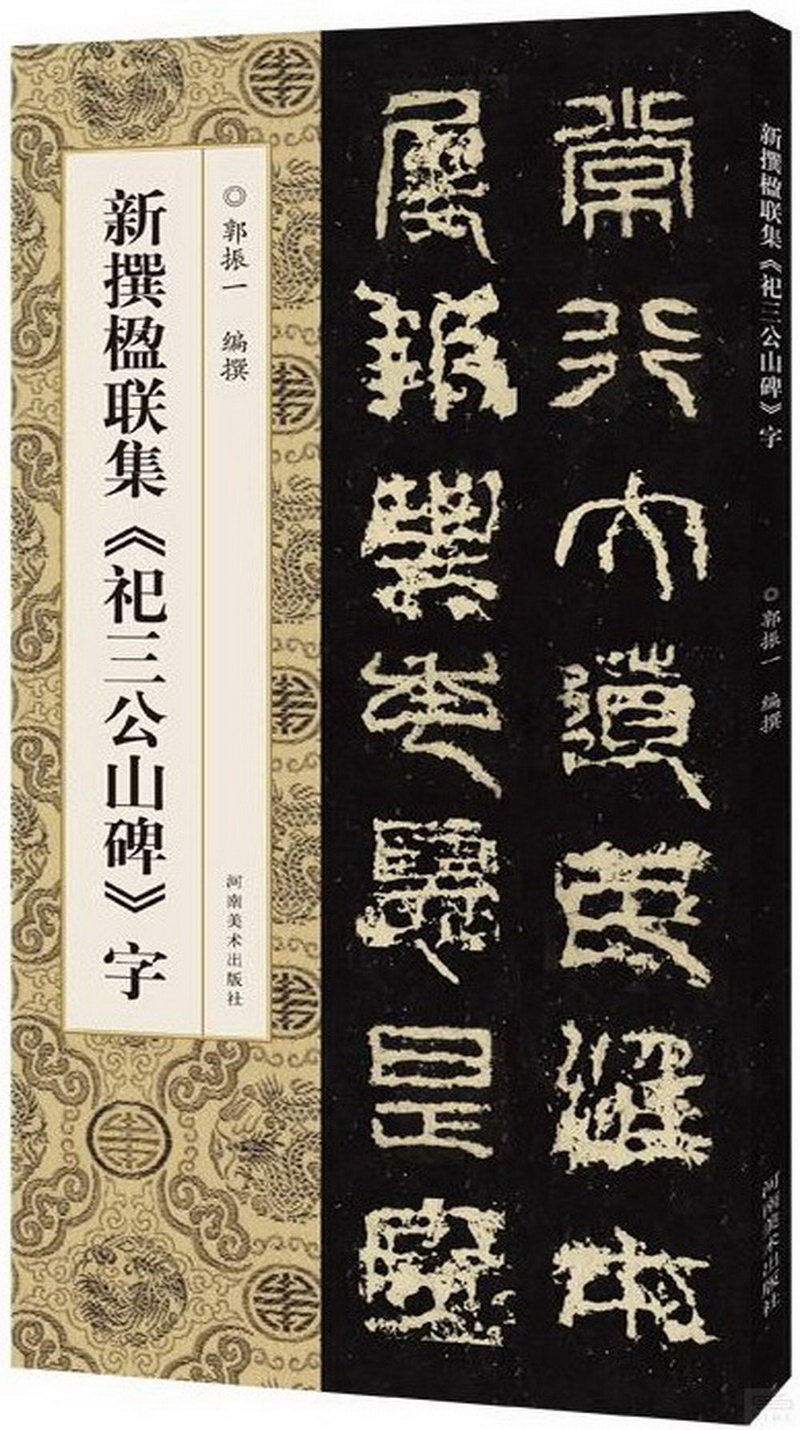 新撰楹联集《祀三公山碑》字
◎郭振一 编撰
河南美术出版社
常行大道民
屢報年是
新撰楹联集《祀三公山碑》字
◎郭振一 编撰
河南美术出版社